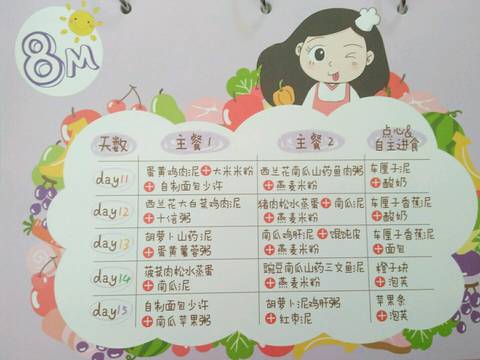 8M
天数 主餐1 主餐2 点心&
自主进食
day11 蛋黄鸡肉泥+大米米粉 西兰花南瓜山药鱼肉粥 车厘子泥
+自制面包少许 +燕麦米粉 +酸奶
day12 西兰花大白菜鸡肉泥 猪肉松水蒸蛋+南瓜泥 车厘子香蕉泥
+十倍粥 +燕麦米粉 +酸奶
day13 胡萝卜山药泥 南瓜鸡肝泥+馄饨皮 车厘子香蕉泥
+蛋黄薯蓉粥 +燕麦米粉 +面包
day14 菠菜肉松水蒸蛋 豌豆南瓜山药三文鱼泥 橙子块
+南瓜泥 +燕麦米粉 +泡芙
day15 自制面包少许 胡萝卜泥鸡肝粥 苹果条
+南瓜苹果粥 +红枣泥 +泡芙